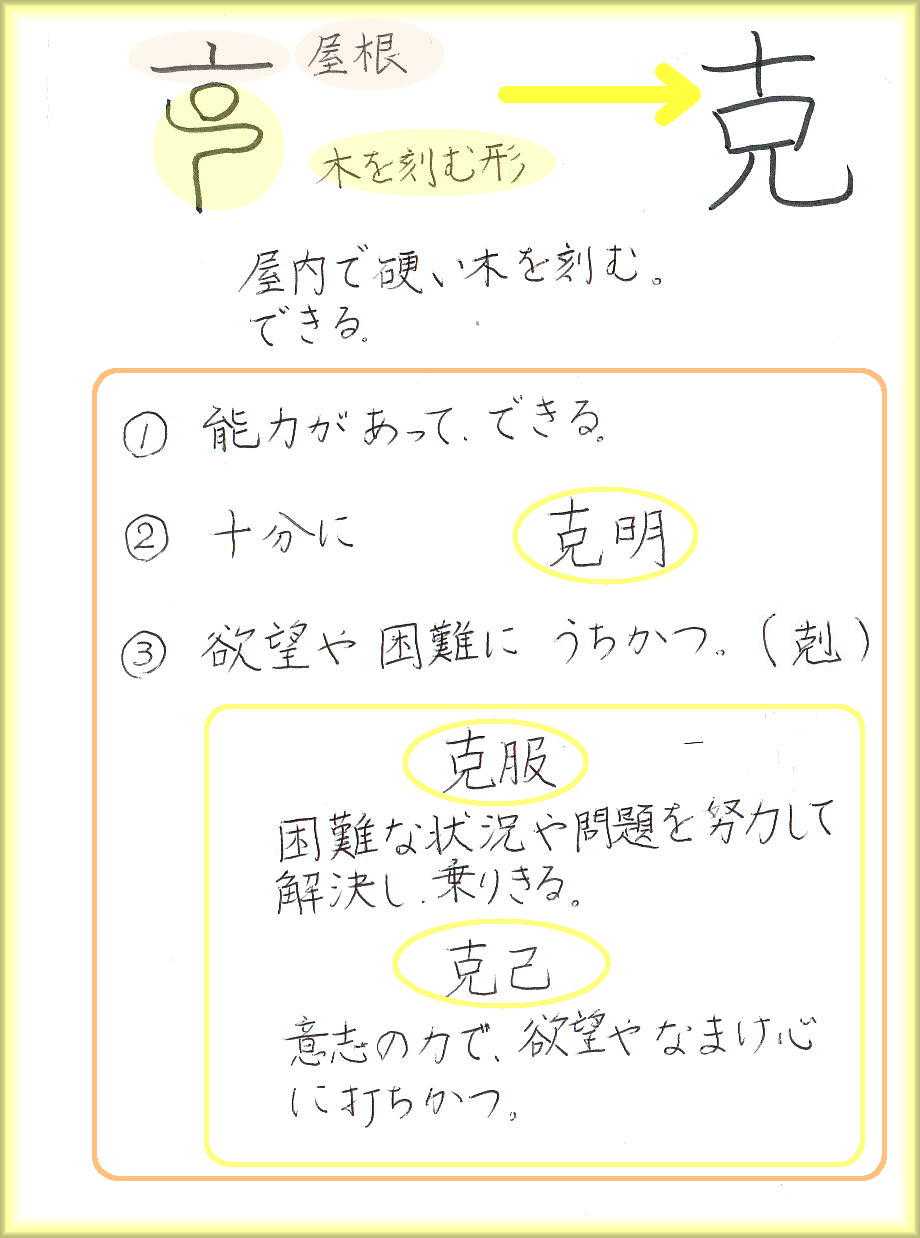 屋根
克
木を刻む形
屋内で硬い木を刻む。
できる。
① 能力があって、できる。
② 十分に 克明
③ 欲望や困難に うちかつ。(剋)
克服
困難な状況や問題を努力して
解決し、乗りきる。
克己
意志の力で、欲望やなまけ心
に打ちかつ。